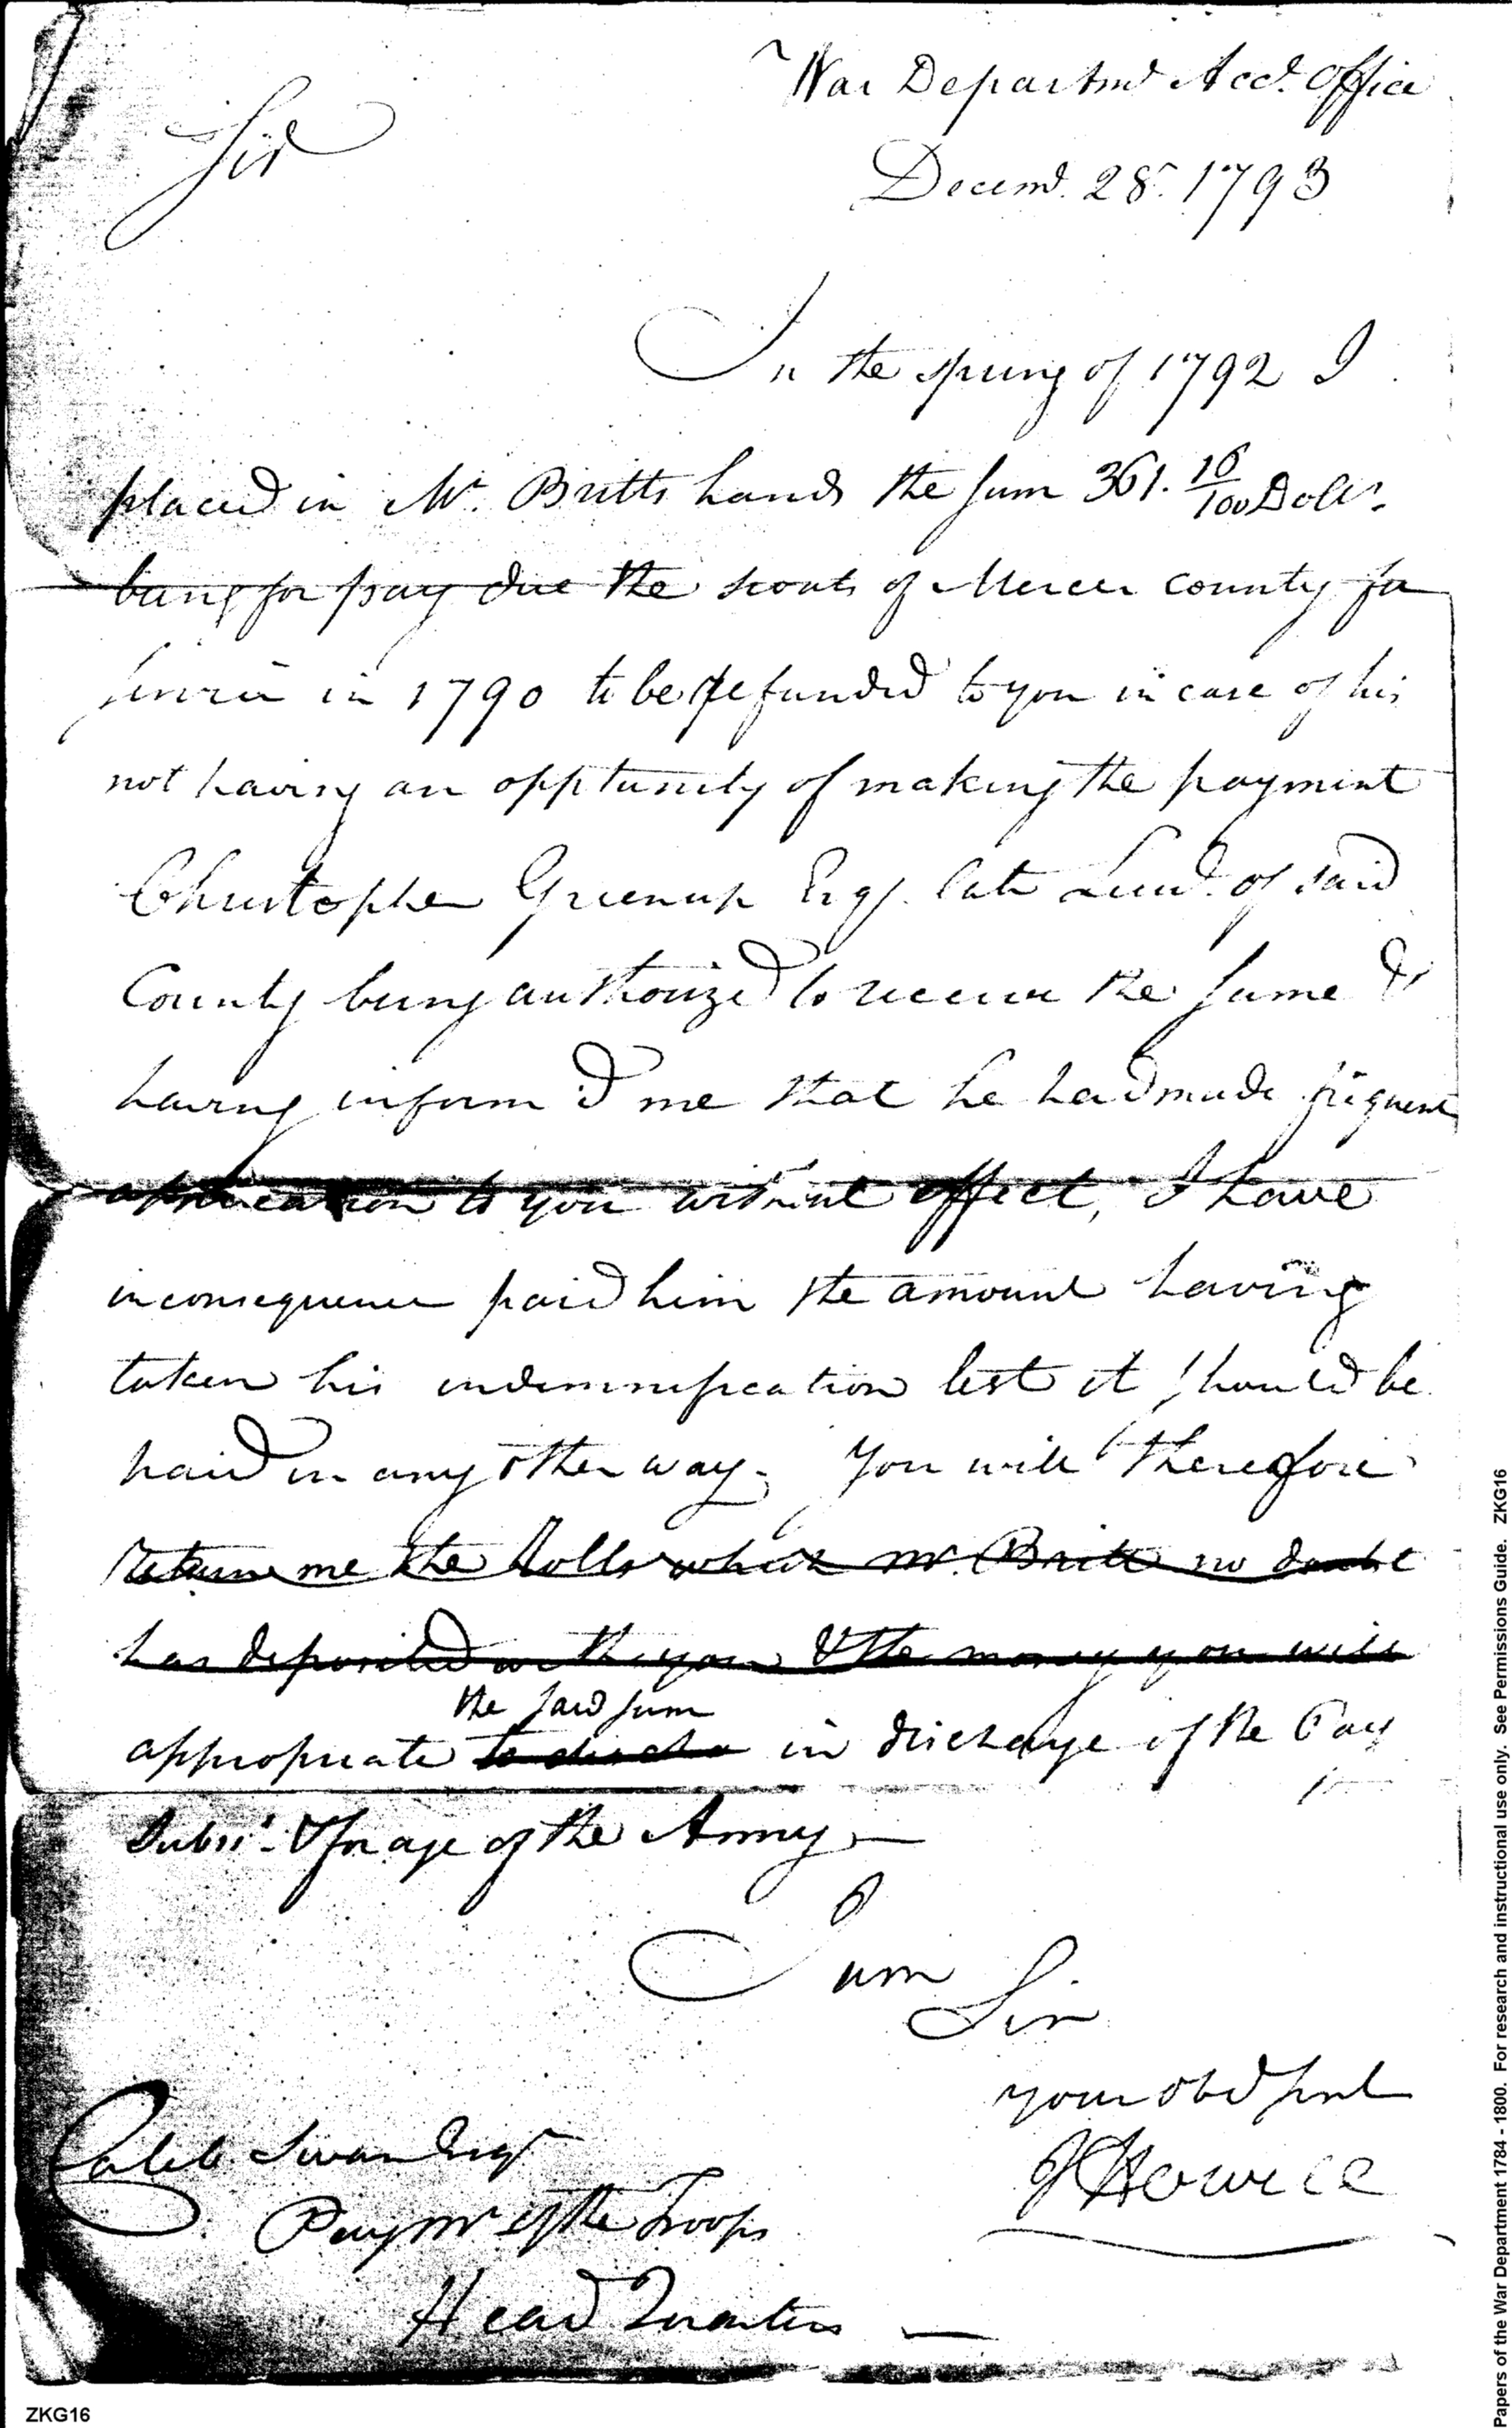 War Departmt Acct. Office
Sir
Decemr. 28. 1793
In the spring of 1792 I
placed in Mr. Britts hands the sum 361. 16/100 Dollrs.
being for pay due the scouts of Mercer county for
service in 1790 to be refunded to you in case of his
not having an opptunity of making the payment
Christopher Greenup Esqr. late Lieut. of said
County being authorized to receive the same &
having inform'd me that he had made frequent
application to you without effect, I have
inconsequence paid him the amount having
taken his indemnification lest it should be
paid in any other way. You will therefore
return me the Rolls which Mr. Britt no doubt
has deposited with you & the money you will
the said sum
appropriate to discha in discharge of the Pay
Subsi. & forage of the Army
I am
Sir
your obd servt
J Howell
Caleb Swan Esqr
Paymr of the Troops
Head Quarters
ZKG16
Papers of the War Department 1784 - 1800. For research and instructional use only. See Permissions Guide. ZKG16